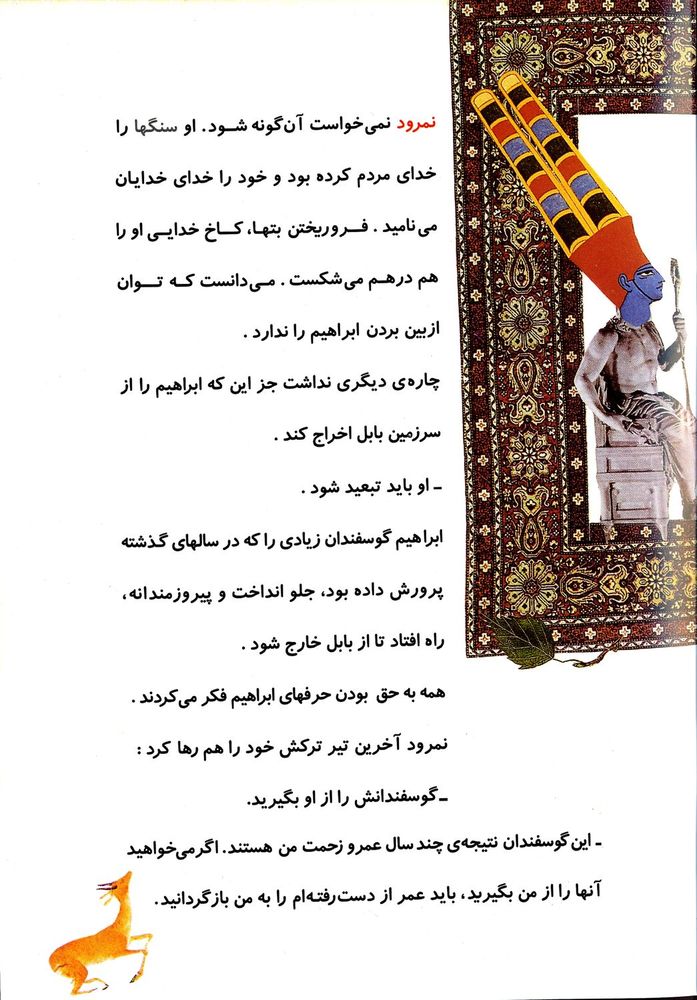 نمرود نمی‌خواست آن‌گونه شـود. او سنگها را
خدای مردم کرده بود و خود را خدای خدایان
می‌نامید . فـروریختن بتهـا، کـاخ خدایـی او را
هم درهـم می‌شکست . مـی‌دانست کـه تـوان
ازبین بردن ابراهیم را ندارد .
چاره‌ی دیگری نداشت جز این که ابراهیم را از
سرزمین بابل اخراج کند .
ـ او باید تبعید شود .
ابراهیم گوسفندان زیادی را که در سالهای گذشته
پرورش داده بود، جلو انداخت و پیروزمندانه،
راه افتاد تا از بابل خارج شود .
همه به حق بودن حرفهای ابراهیم فکر می‌کردند .
نمرود آخرین تیر ترکش خود را هم رها کرد :
ـ گوسفندانش را از او بگیرید.
ـ این گوسفندان نتیجه‌ی چند سال عمرو زحمت من هستند. اگر می‌خواهید
آنها را از من بگیرید، باید عمر از دست‌رفته‌ام را به من بازگردانید.